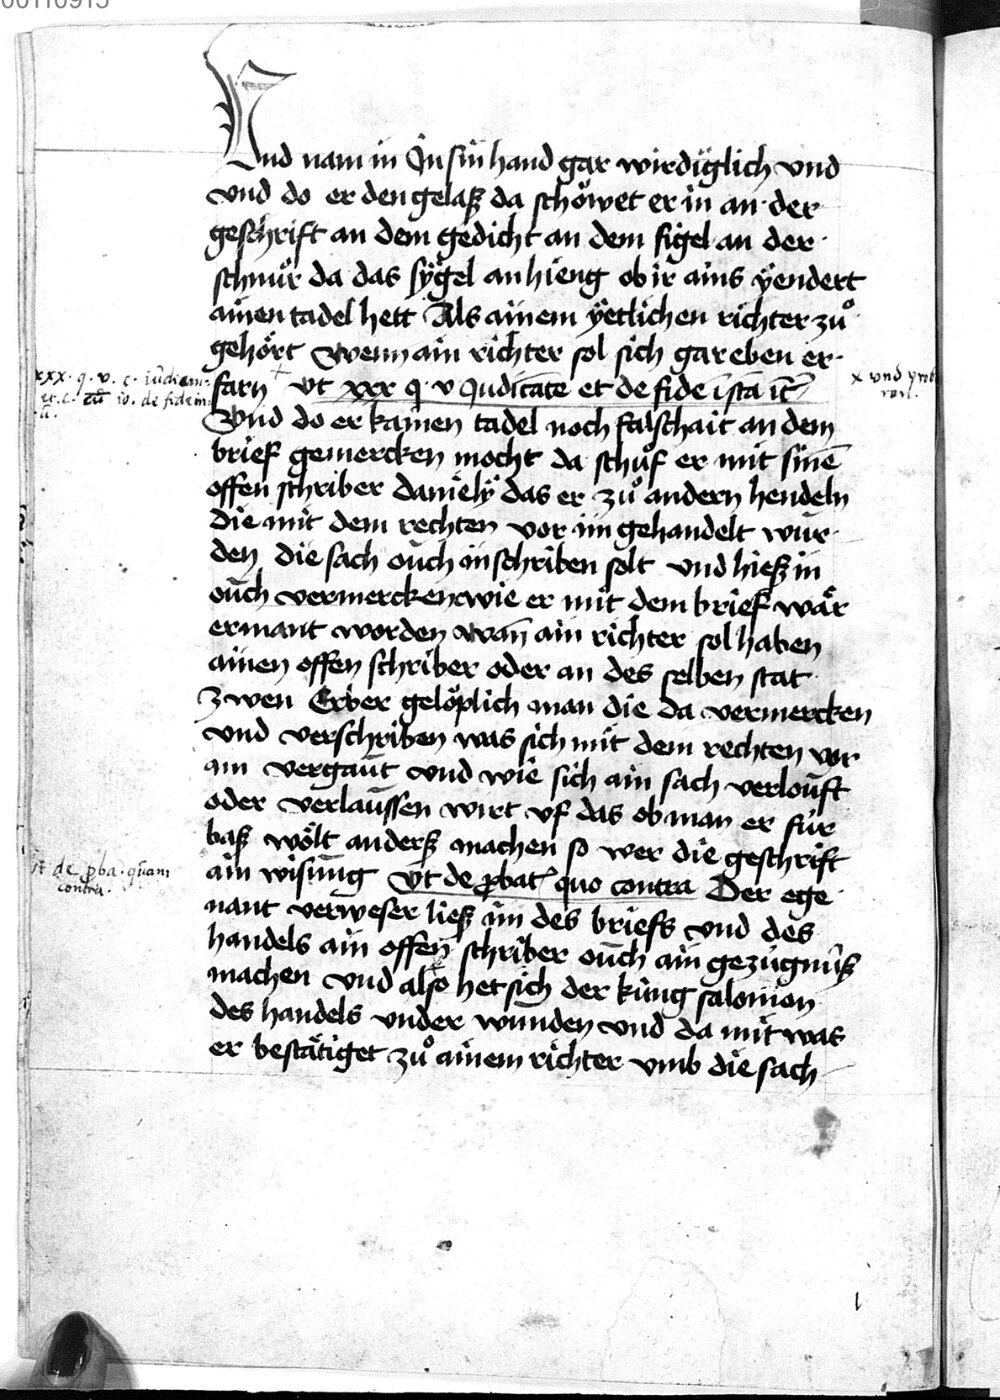 00110915
Vnd nam in Jn sin hand gar wirdiglich vnd
vnd do er den gelasz da schöwet er in an der
geschrift an dem gedicht an dem sigel an der
schnuͦr da das sygel an hieng ob ir ains yendert
ainen tadel hett Als ainem yetlichen richter zuͦ
gehört Wenn ain richter sol sich gar eben er
farn vt xxx q v Judicante et de fide insta
Vnd do er kainen tadel noch falschait an dem
brief gemercken mocht da schuͦf er mit sinē
offen schriber daniely das er zuͦ andern hendeln
die mit dem rechten vor im gehandelt wur
den die sach ouch in schriben solt vnd hiesz in
ouch vermercken wie er mit dem brief wär
ermant worden wan̄ ain richter sol haben
ainen offen schriber oder an des selben stat
zwen Erber gelöplich man die da vermercken
vnd verschriben was sich mit dem rechten vor
am vergaut vnd wie sich ain sach verlouft
oder verlaussen wirt vf das ob man er für
basz wölt andersz machen so wer die geschrift
ain wisung Vt de ꝓbat quo contra Der ege
nant verweser liesz im des briefs vnd des
handels ain offen schriber ouch ain gezügnüsz
machen vnd also het sich der küng salomon
des handels vnder wunden vnd da mit was
er bestätiget zuͦ ainem richter vmb die sach
xxx. q. v. c. iudicam
et. c. cū io. de fide in
x vnd
de ꝓba. quam
contra.